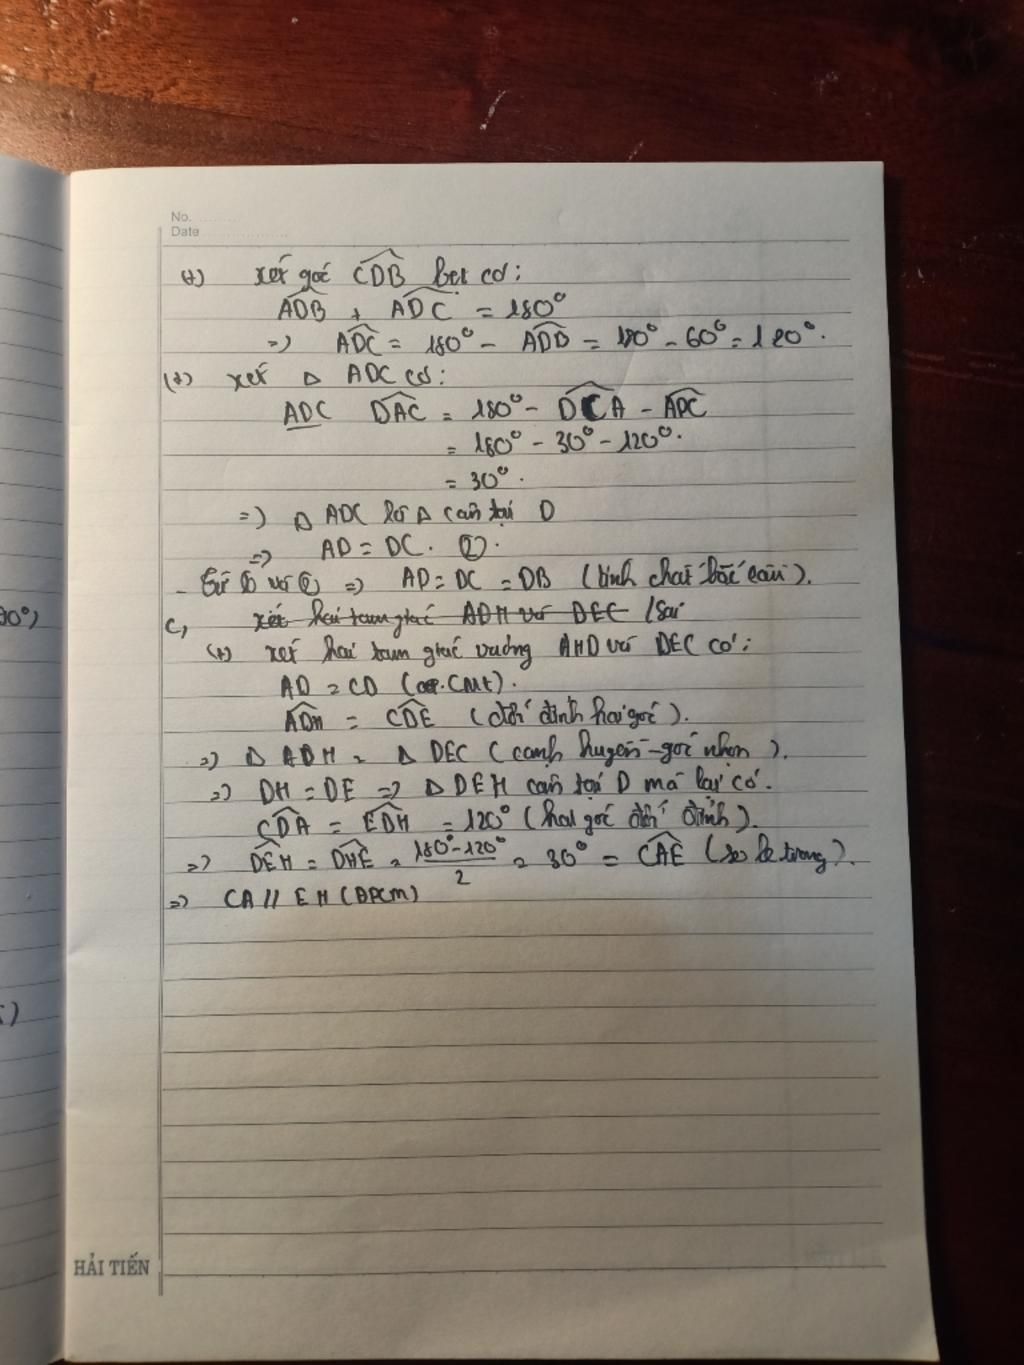 No.
Date
(+) xét góc CDB bẹt có:
ADB + ADC = 180°
=> ADC = 180° - ADB = 180° - 60° = 120°.
(+) xét Δ ADC có:
ADC DAC = 180° - DCA - ADC
= 180° - 30° - 120°.
= 30°.
=> Δ ADC là Δ cân tại D
=> AD = DC. ②.
- Từ ① và ② => AD = DC = DB (tính chất bắc cầu).
c, xét hai tam giác ADH và DEC /Sai
(+) xét hai tam giác vuông AHD và DEC có:
AD = CD (CMt).
ADH = CDE (đối đỉnh hai góc).
=> Δ ADH = Δ DEC (cạnh huyền - góc nhọn).
=> DH = DE => Δ DEH cân tại D mà lại có.
CDA = EDH = 120° (hai góc đối đỉnh).
=> DEH = DHE = 180°-120°/2 = 30° = CAE (so le trong).
=> CA // EH (ĐPCM)
90°)
)
HẢI TIẾN